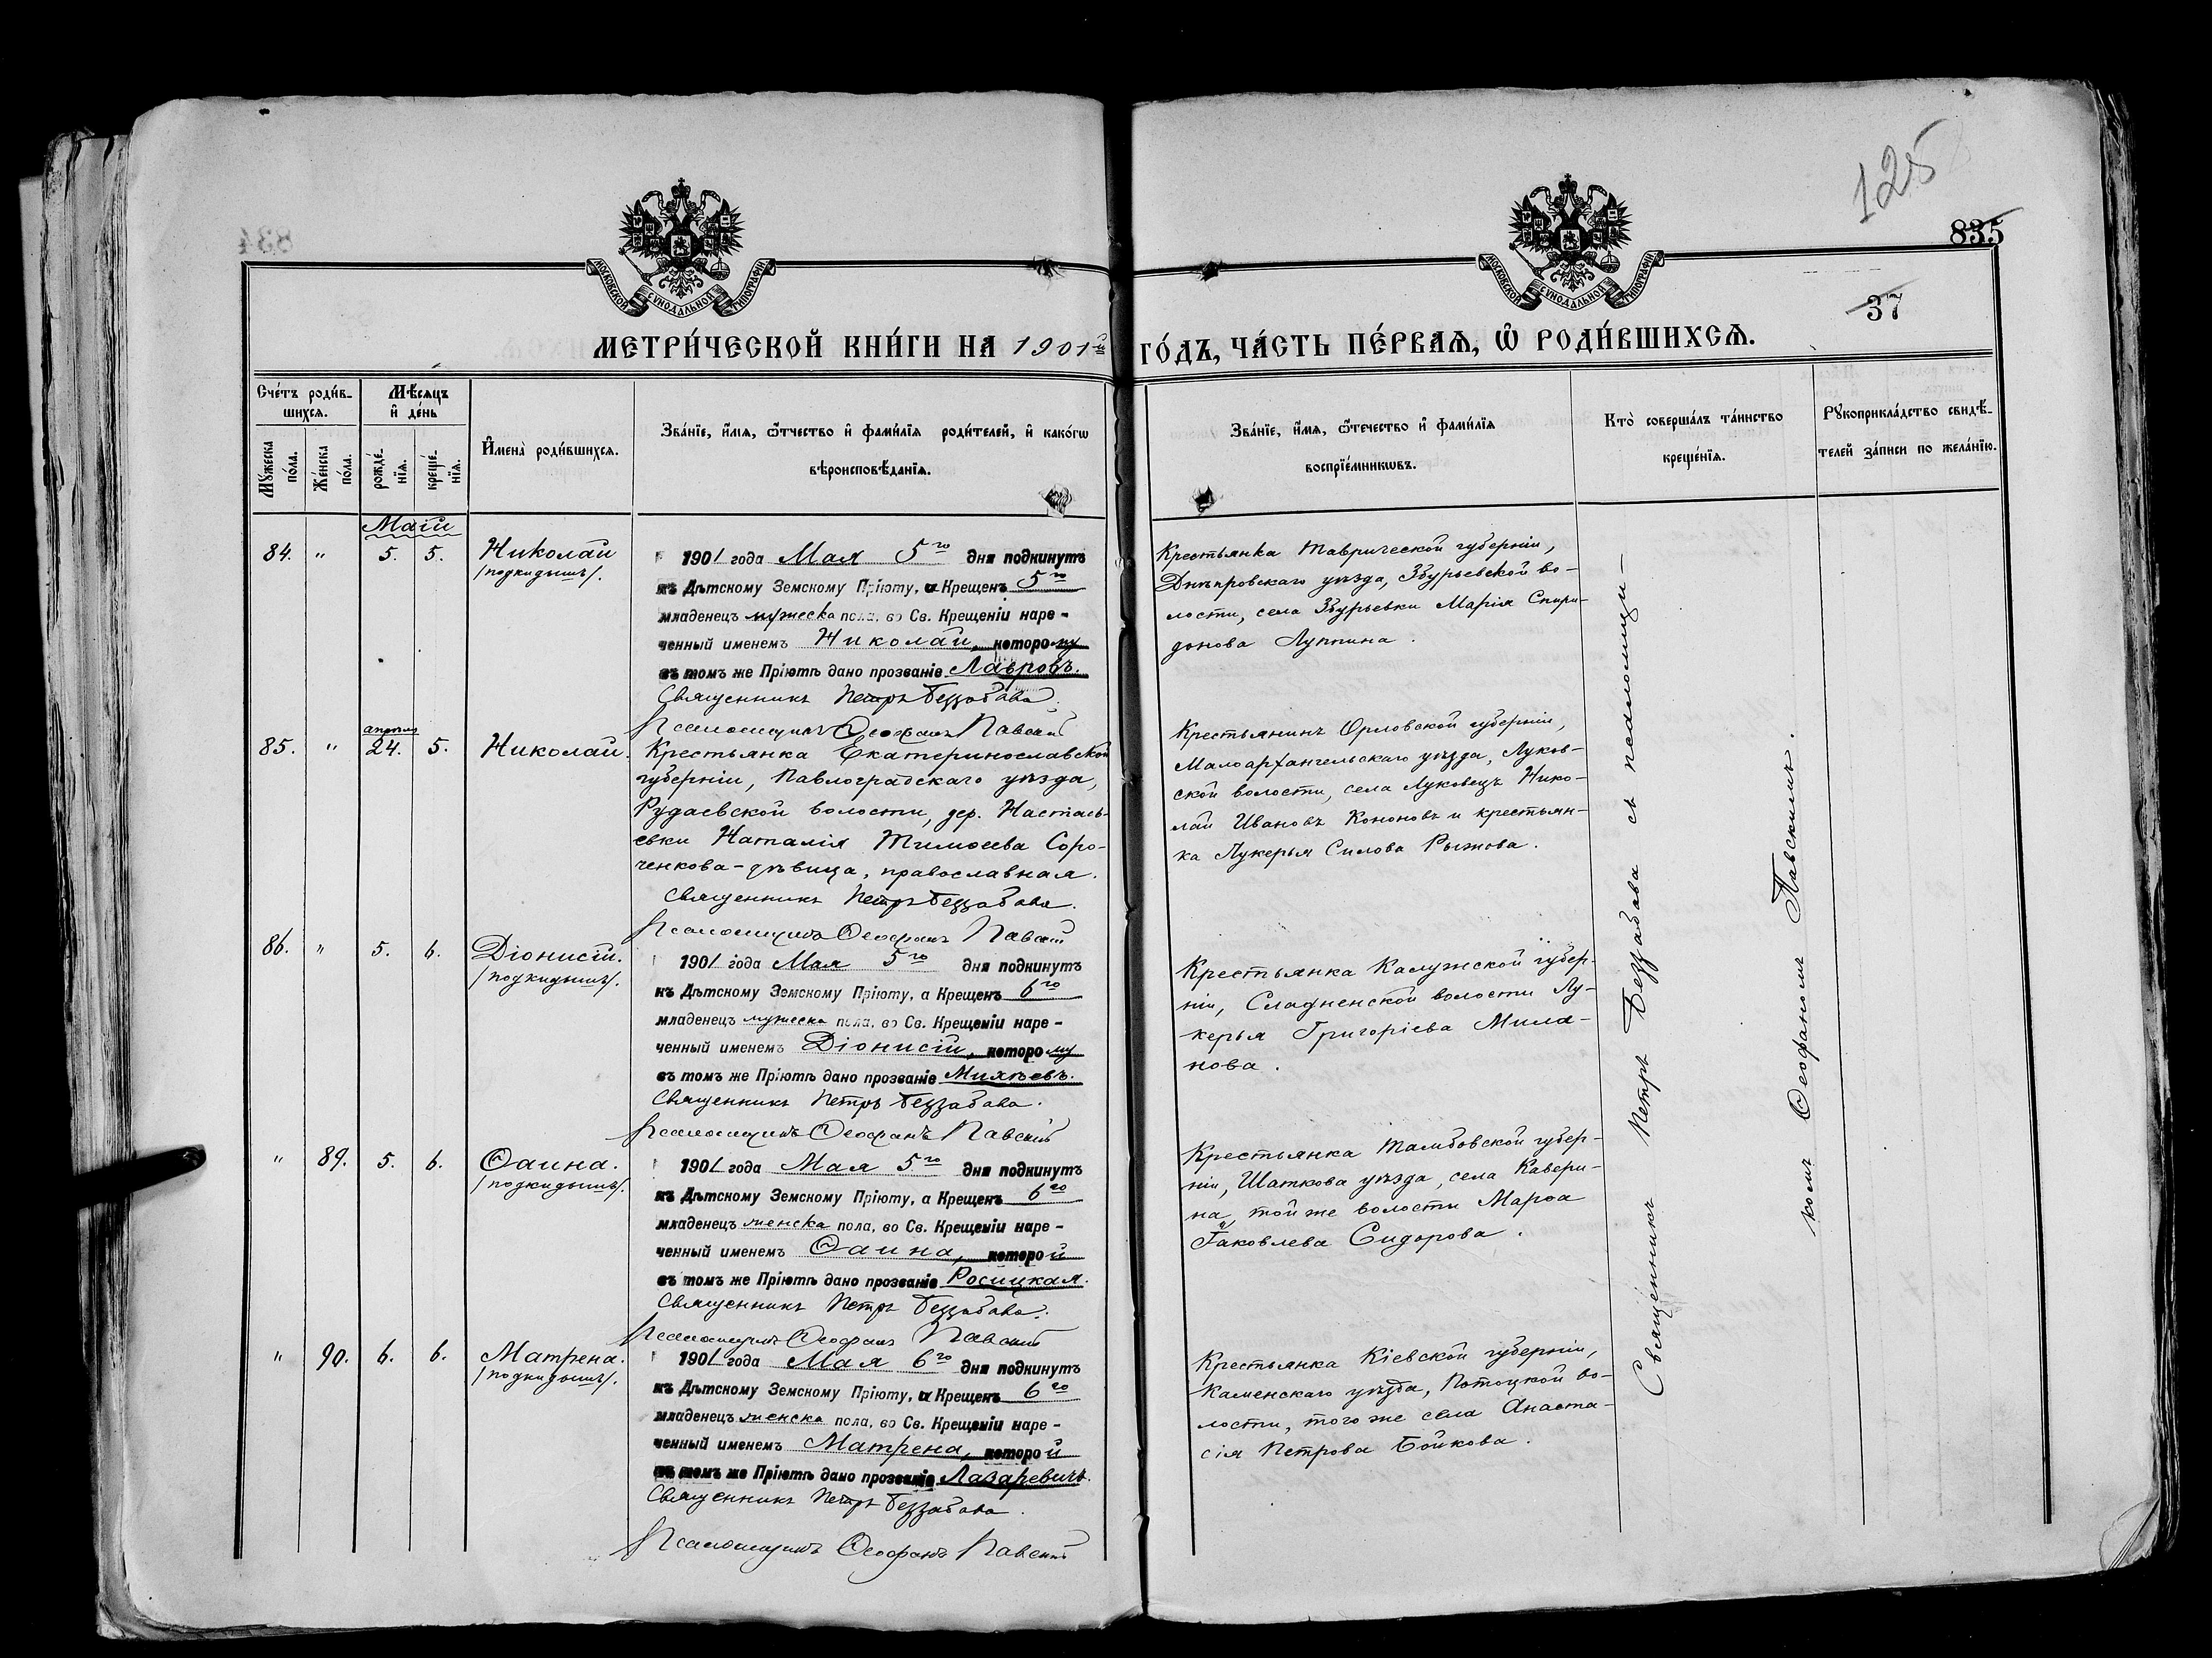 125
835
834
37
МОСКОВСКОЙ СУНОДАЛЬНОЙ ТИПОГРАФІИ
МОСКОВСКОЙ СУНОДАЛЬНОЙ ТИПОГРАФІИ
МЕТРИ́ЧЕСКОЙ КНИ́ГИ НА 1901й ГО́ДЪ, ЧА́СТЬ ПЕ́РВАѦ, Ѡ РОДИ́ВШИХСѦ.
Сче́тъ роди́в-
шихсѧ.
Му́жеска по́ла.
Же́нска по́ла.
Мѣ́сѧцъ
и҆ де́нь
рожде́-нїѧ.
креще́-нїѧ.
И҆мена̀ роди́вшихсѧ.
Зва́нїе, и҆́мѧ, ѻ҆́тчество и҆ фами́лїѧ роди́телей, и҆ како́гѡ
вѣроисповѣ́данїѧ.
Зва́нїе, и҆́мѧ, ѻ҆те́чество и҆ фами́лїѧ
воспрїе́мникѡвъ.
Кто̀ соверша́лъ та́инство
креще́нїѧ.
Рꙋкоприкла́дство свидѣ́-
телей за́писи по жела́нїю.
Май
84. " 5. 5. Николай
/подкидышъ/.
1901 года Мая 5го дня подкинутъ
къ Дѣтскому Земскому Пріюту, а Крещенъ 5го
младенецъ мужеска пола, во Св. Крещеніи наре-
ченный именемъ Николай, которому
въ томъ же Пріютѣ дано прозваніе Лавровъ.
Священникъ Петръ Беззабава.
Псаломщикъ Ѳеофанъ Павскій
Крестьянка Таврической губерніи,
Днѣпровскаго уѣзда, Збурьевской во-
лости, села Збурьевки Марія Спири-
донова Луппина.
апрѣля
85. " 24. 5. Николай.
Крестьянка Екатеринославской
губерніи, Павлоградскаго уѣзда,
Рудаевской волости, дер. Настась-
евки Наталія Тимоѳеева Соро-
ченкова-дѣвица, православная.
Священникъ Петръ Беззабава.
Псаломщикъ Ѳеофанъ Павскій
Крестьянинъ Орловской губерніи,
Малоархангельскаго уѣзда, Луков-
ской волости, села Луковецъ Нико-
лай Ивановъ Кононовъ и крестьян-
ка Лукерья Силова Рыжова.
86. " 5. 6. Діонисій.
/подкидышъ/.
1901 года Мая 5го дня подкинутъ
къ Дѣтскому Земскому Пріюту, а Крещенъ 6го
младенецъ мужеска пола, во Св. Крещеніи наре-
ченный именемъ Діонисій, которому
въ томъ же Пріютѣ дано прозваніе Михѣевъ.
Священникъ Петръ Беззабава.
Псаломщикъ Ѳеофанъ Павскій
Крестьянка Калужской губер-
ніи, Сладненской волости Лу-
керья Григоріева Мила-
нова.
" 89. 5. 6. Ѳаина.
/подкидышъ/.
1901 года Мая 5го дня подкинутъ
къ Дѣтскому Земскому Пріюту, а Крещенъ 6го
младенецъ женска пола, во Св. Крещеніи наре-
ченный именемъ Ѳаина, которой
въ томъ же Пріютѣ дано прозваніе Росицкая.
Священникъ Петръ Беззабава.
Псаломщикъ Ѳеофанъ Павскій
Крестьянка Тамбовской губер-
ніи, Шаткова уѣзда, села Кавери-
на, той же волости Марѳа
Іаковлева Сидорова.
" 90. 6. 6. Матрена.
/подкидышъ/.
1901 года Мая 6го дня подкинутъ
къ Дѣтскому Земскому Пріюту, а Крещенъ 6го
младенецъ женска пола, во Св. Крещеніи наре-
ченный именемъ Матрена, которой
въ томъ же Пріютѣ дано прозваніе Лазаревичъ.
Священникъ Петръ Беззабава.
Псаломщикъ Ѳеофанъ Павскій
Крестьянка Кіевской губерніи,
Каменскаго уѣзда, Потоцкой во-
лости, того же села Анаста-
сія Петрова Бойкова.
Священникъ Петръ Беззабава съ псаломщи-
комъ Ѳеофаномъ Павскимъ.